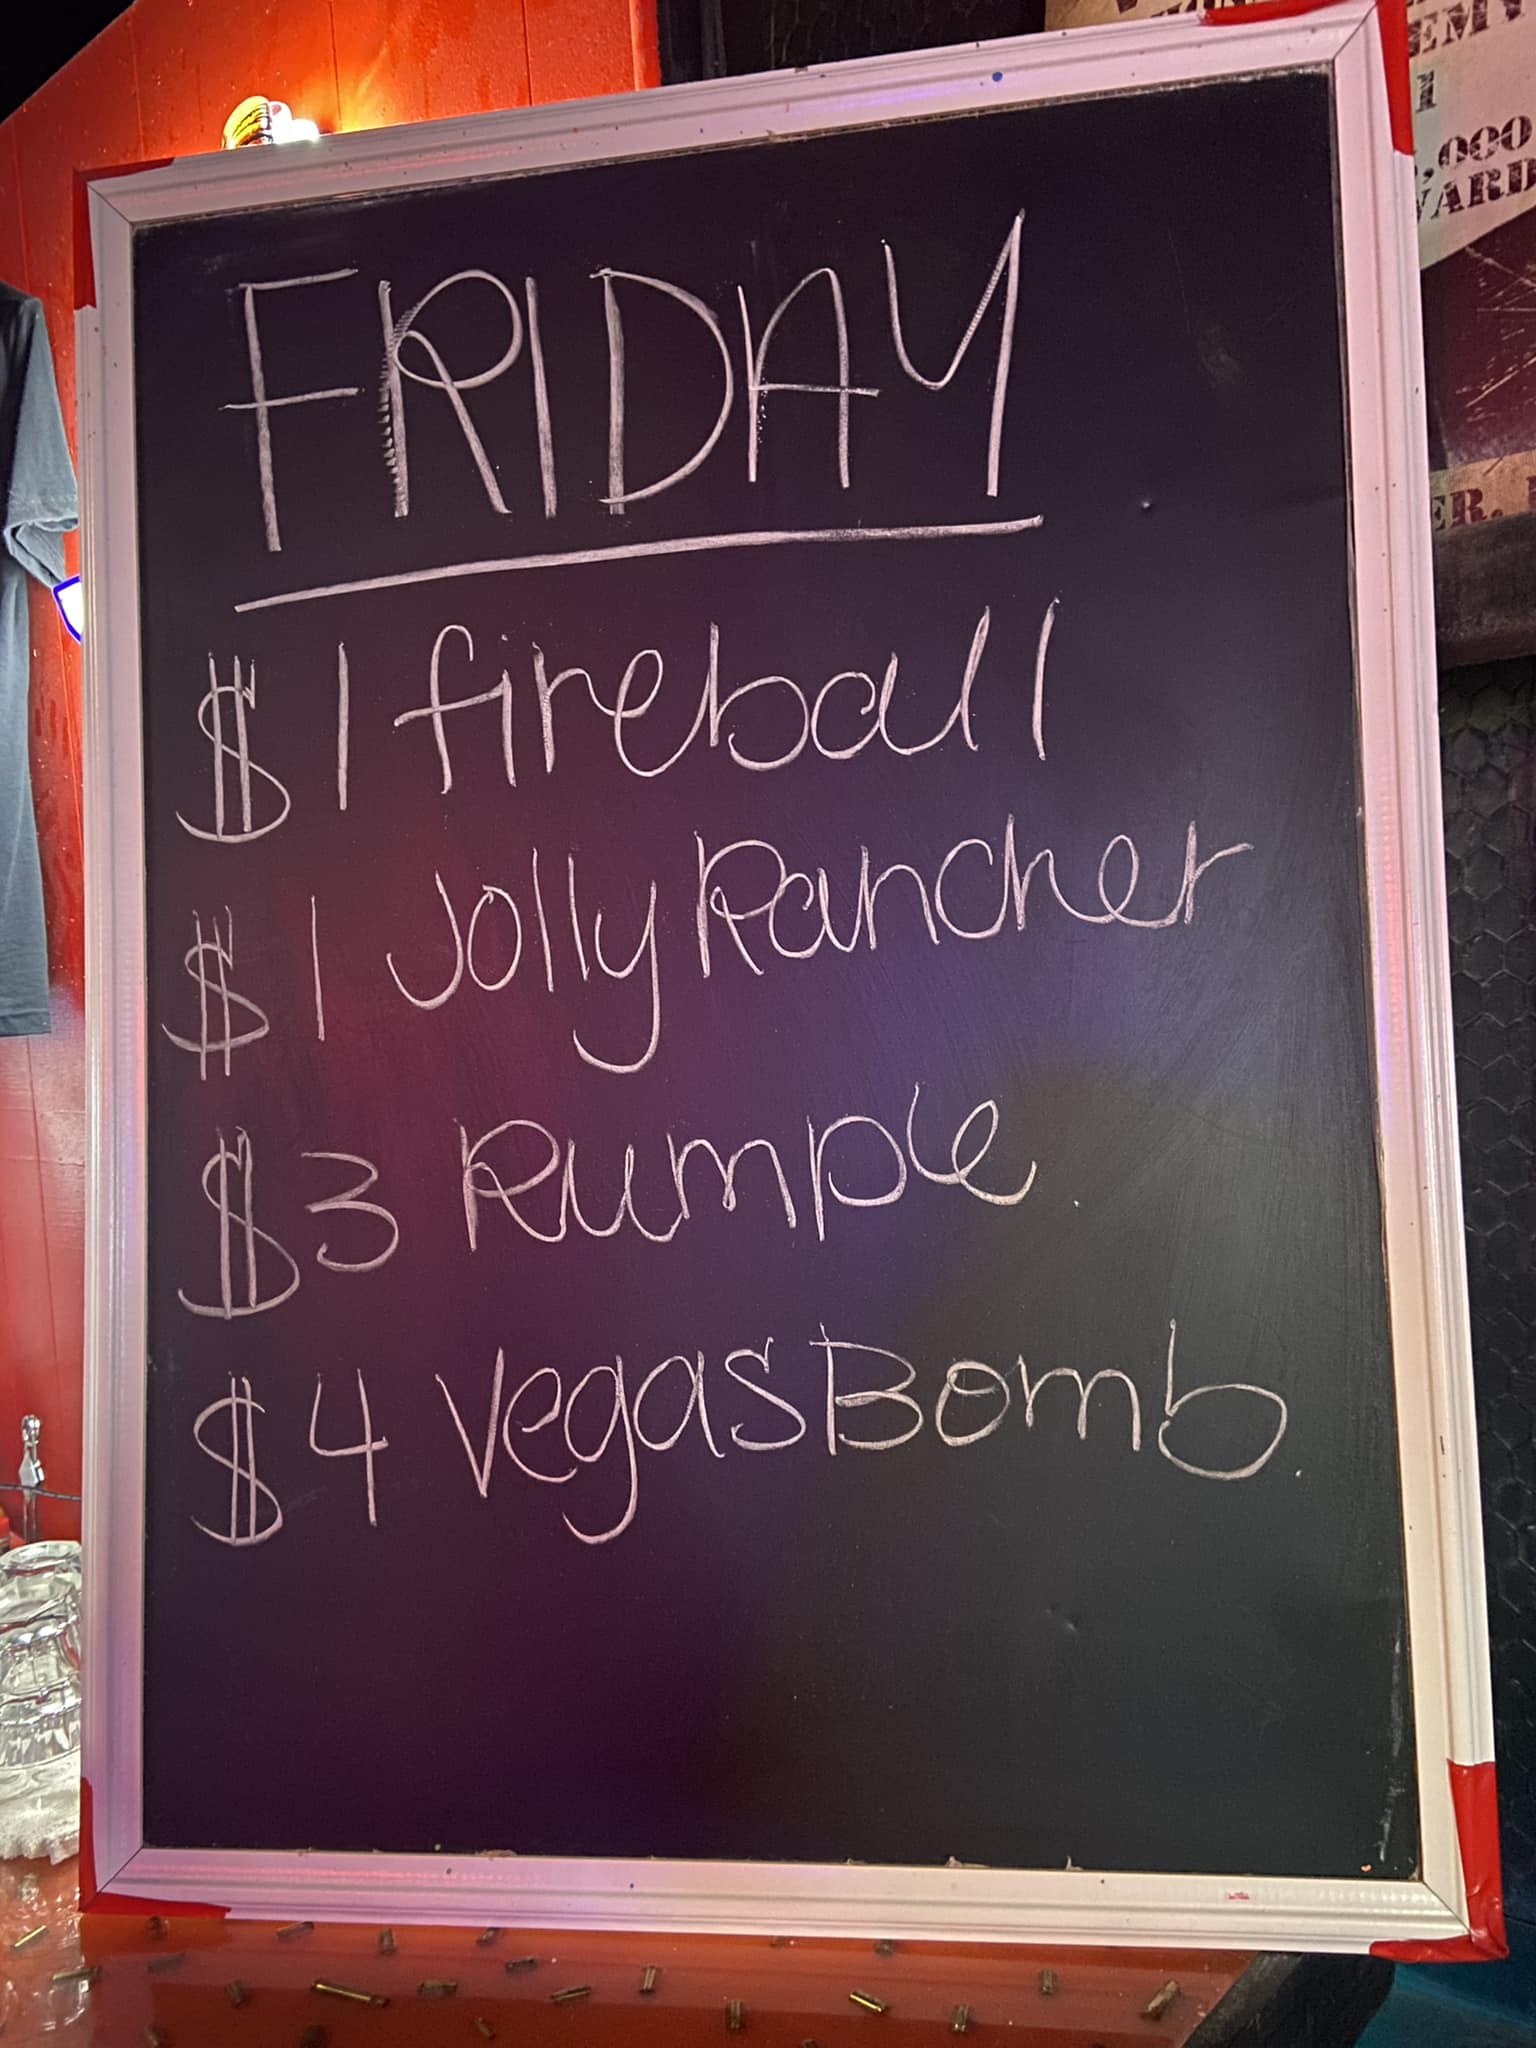 FRIDAY
$1 fireball
$1 Jolly Rancher
$3 Rumple
$4 Vegas Bomb
,000
ER.